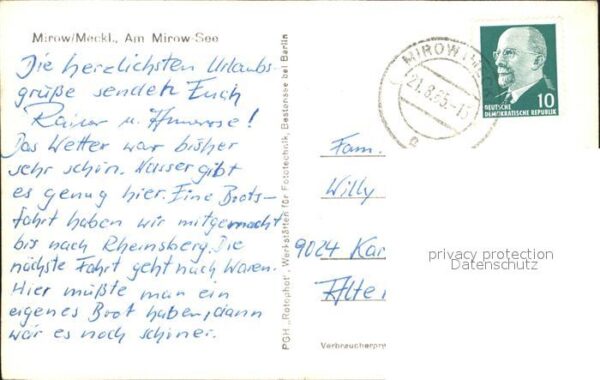 Mirow/Meckl., Am Mirow-See
Die herzlichsten Urlaubs-
grüße senden Euch
Rainer u. Annerose!
Das Wetter war bisher
sehr schön. Wasser gibt
es genug hier. Eine Boots-
fahrt haben wir mitgemacht
bis nach Rheinsberg. Die
nächste Fahrt geht nach Waren.
Hier müßte man ein
eigenes Boot haben, dann
wär es noch schöner.
PGH „Rotophot", Werkstätten für Fototechnik, Bestensee bei Berlin
MIROW
21.8.65-15
DEUTSCHE
DEMOKRATISCHE REPUBLIK
10
Fam.
Willy
9024 Kar
Alte
privacy protection
Datenschutz
Verbraucherpre